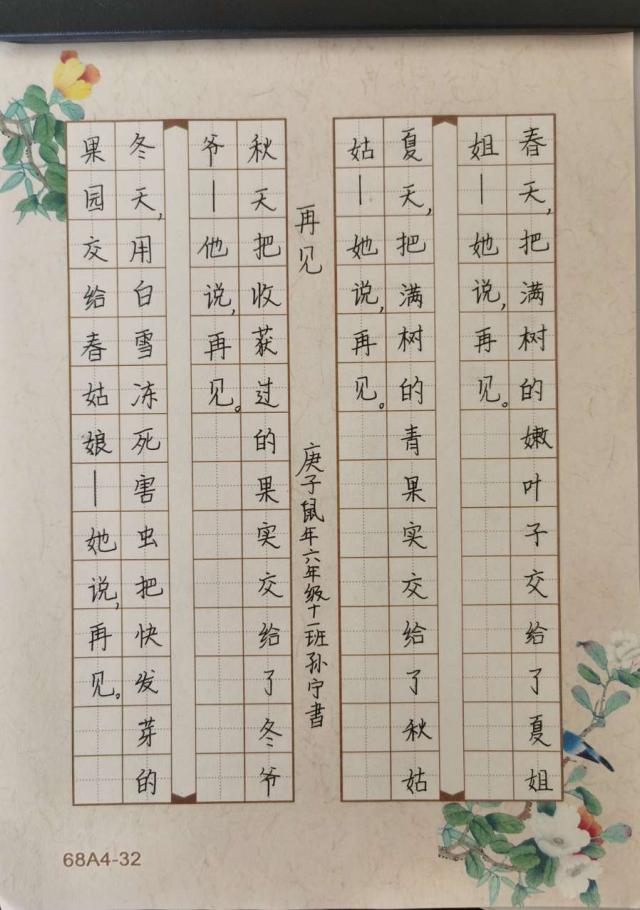 春天,把满树的嫩叶子交给了夏姐
姐—她说,再见。
夏天,把满树的青果实交给了秋姑
姑—她说,再见。
再见
庚子鼠年六年级十一班孙宁书
秋天把收获过的果实交给了冬爷
爷—他说,再见。
冬天,用白雪冻死害虫把快发芽的
果园交给春姑娘—她说,再见。
68A4-32